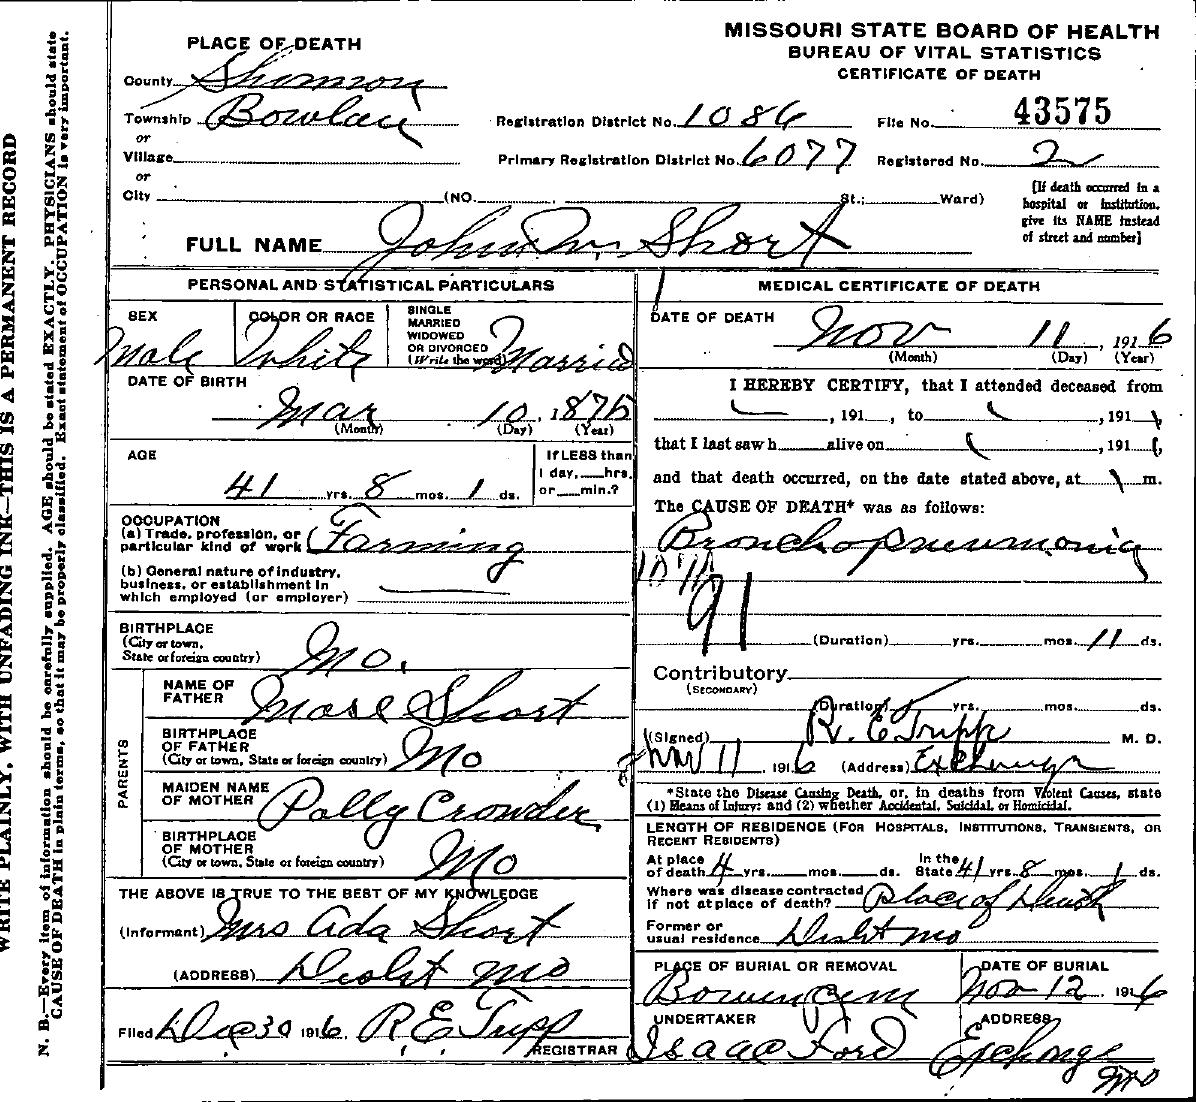 MISSOURI STATE BOARD OF HEALTH
BUREAU OF VITAL STATISTICS
CERTIFICATE OF DEATH
PLACE OF DEATH
County Shannon
Township Bowlan
or
Village
or
City (NO. St.; Ward)
Registration District No. 1086
File No. 43575
Primary Registration District No. 6077
Registered No. 2
[If death occurred in a
hospital or institution,
give its NAME instead
of street and number]
FULL NAME John W. Short
PERSONAL AND STATISTICAL PARTICULARS
SEX
Male
COLOR OR RACE
White
SINGLE
MARRIED
WIDOWED
OR DIVORCED
(Write the word) Married
DATE OF BIRTH
Mar 10, 1875
(Month) (Day) (Year)
AGE
41 yrs. 8 mos. 1 ds.
If LESS than
1 day, hrs.
or min.?
OCCUPATION
(a) Trade, profession, or
particular kind of work Farming
(b) General nature of industry,
business, or establishment in
which employed (or employer)
BIRTHPLACE
(City or town,
State or foreign country) Mo.
PARENTS
NAME OF
FATHER Short
BIRTHPLACE
OF FATHER
(City or town, State or foreign country) Mo
MAIDEN NAME
OF MOTHER Polly Crowder
BIRTHPLACE
OF MOTHER
(City or town, State or foreign country) Mo
THE ABOVE IS TRUE TO THE BEST OF MY KNOWLEDGE
(Informant) Mrs Ada Short
(ADDRESS) Mo
Filed Dec 30 1916 R E Tripp
REGISTRAR
MEDICAL CERTIFICATE OF DEATH
DATE OF DEATH
Nov 11, 1916
(Month) (Day) (Year)
I HEREBY CERTIFY, that I attended deceased from
, 191 , to , 191
that I last saw h alive on , 191 ,
and that death occurred, on the date stated above, at m.
The CAUSE OF DEATH* was as follows:
Bronchopneumonia
91
(Duration) yrs. mos. 11 ds.
Contributory
(SECONDARY)
(Duration) yrs. mos. ds.
(Signed) R. E Tripp M. D.
Nov 11, 1916 (Address) Exchange
*State the Disease Causing Death, or, in deaths from Violent Causes, state
(1) Means of Injury; and (2) whether Accidental, Suicidal, or Homicidal.
LENGTH OF RESIDENCE (FOR HOSPITALS, INSTITUTIONS, TRANSIENTS, OR
RECENT RESIDENTS)
At place
of death 4 yrs. mos. ds.
In the
State 41 yrs. 8 mos. 1 ds.
Where was disease contracted
if not at place of death? place of Death
Former or
usual residence Mo
PLACE OF BURIAL OR REMOVAL
Cem
DATE OF BURIAL
Nov 12 1916
UNDERTAKER
Isaac Ford
ADDRESS
Exchange
Mo
WRITE PLAINLY, WITH UNFADING INK—THIS IS A PERMANENT RECORD
N. B.—Every item of information should be carefully supplied. AGE should be stated EXACTLY. PHYSICIANS should state
CAUSE OF DEATH in plain terms, so that it may be properly classified. Exact statement of OCCUPATION is very important.